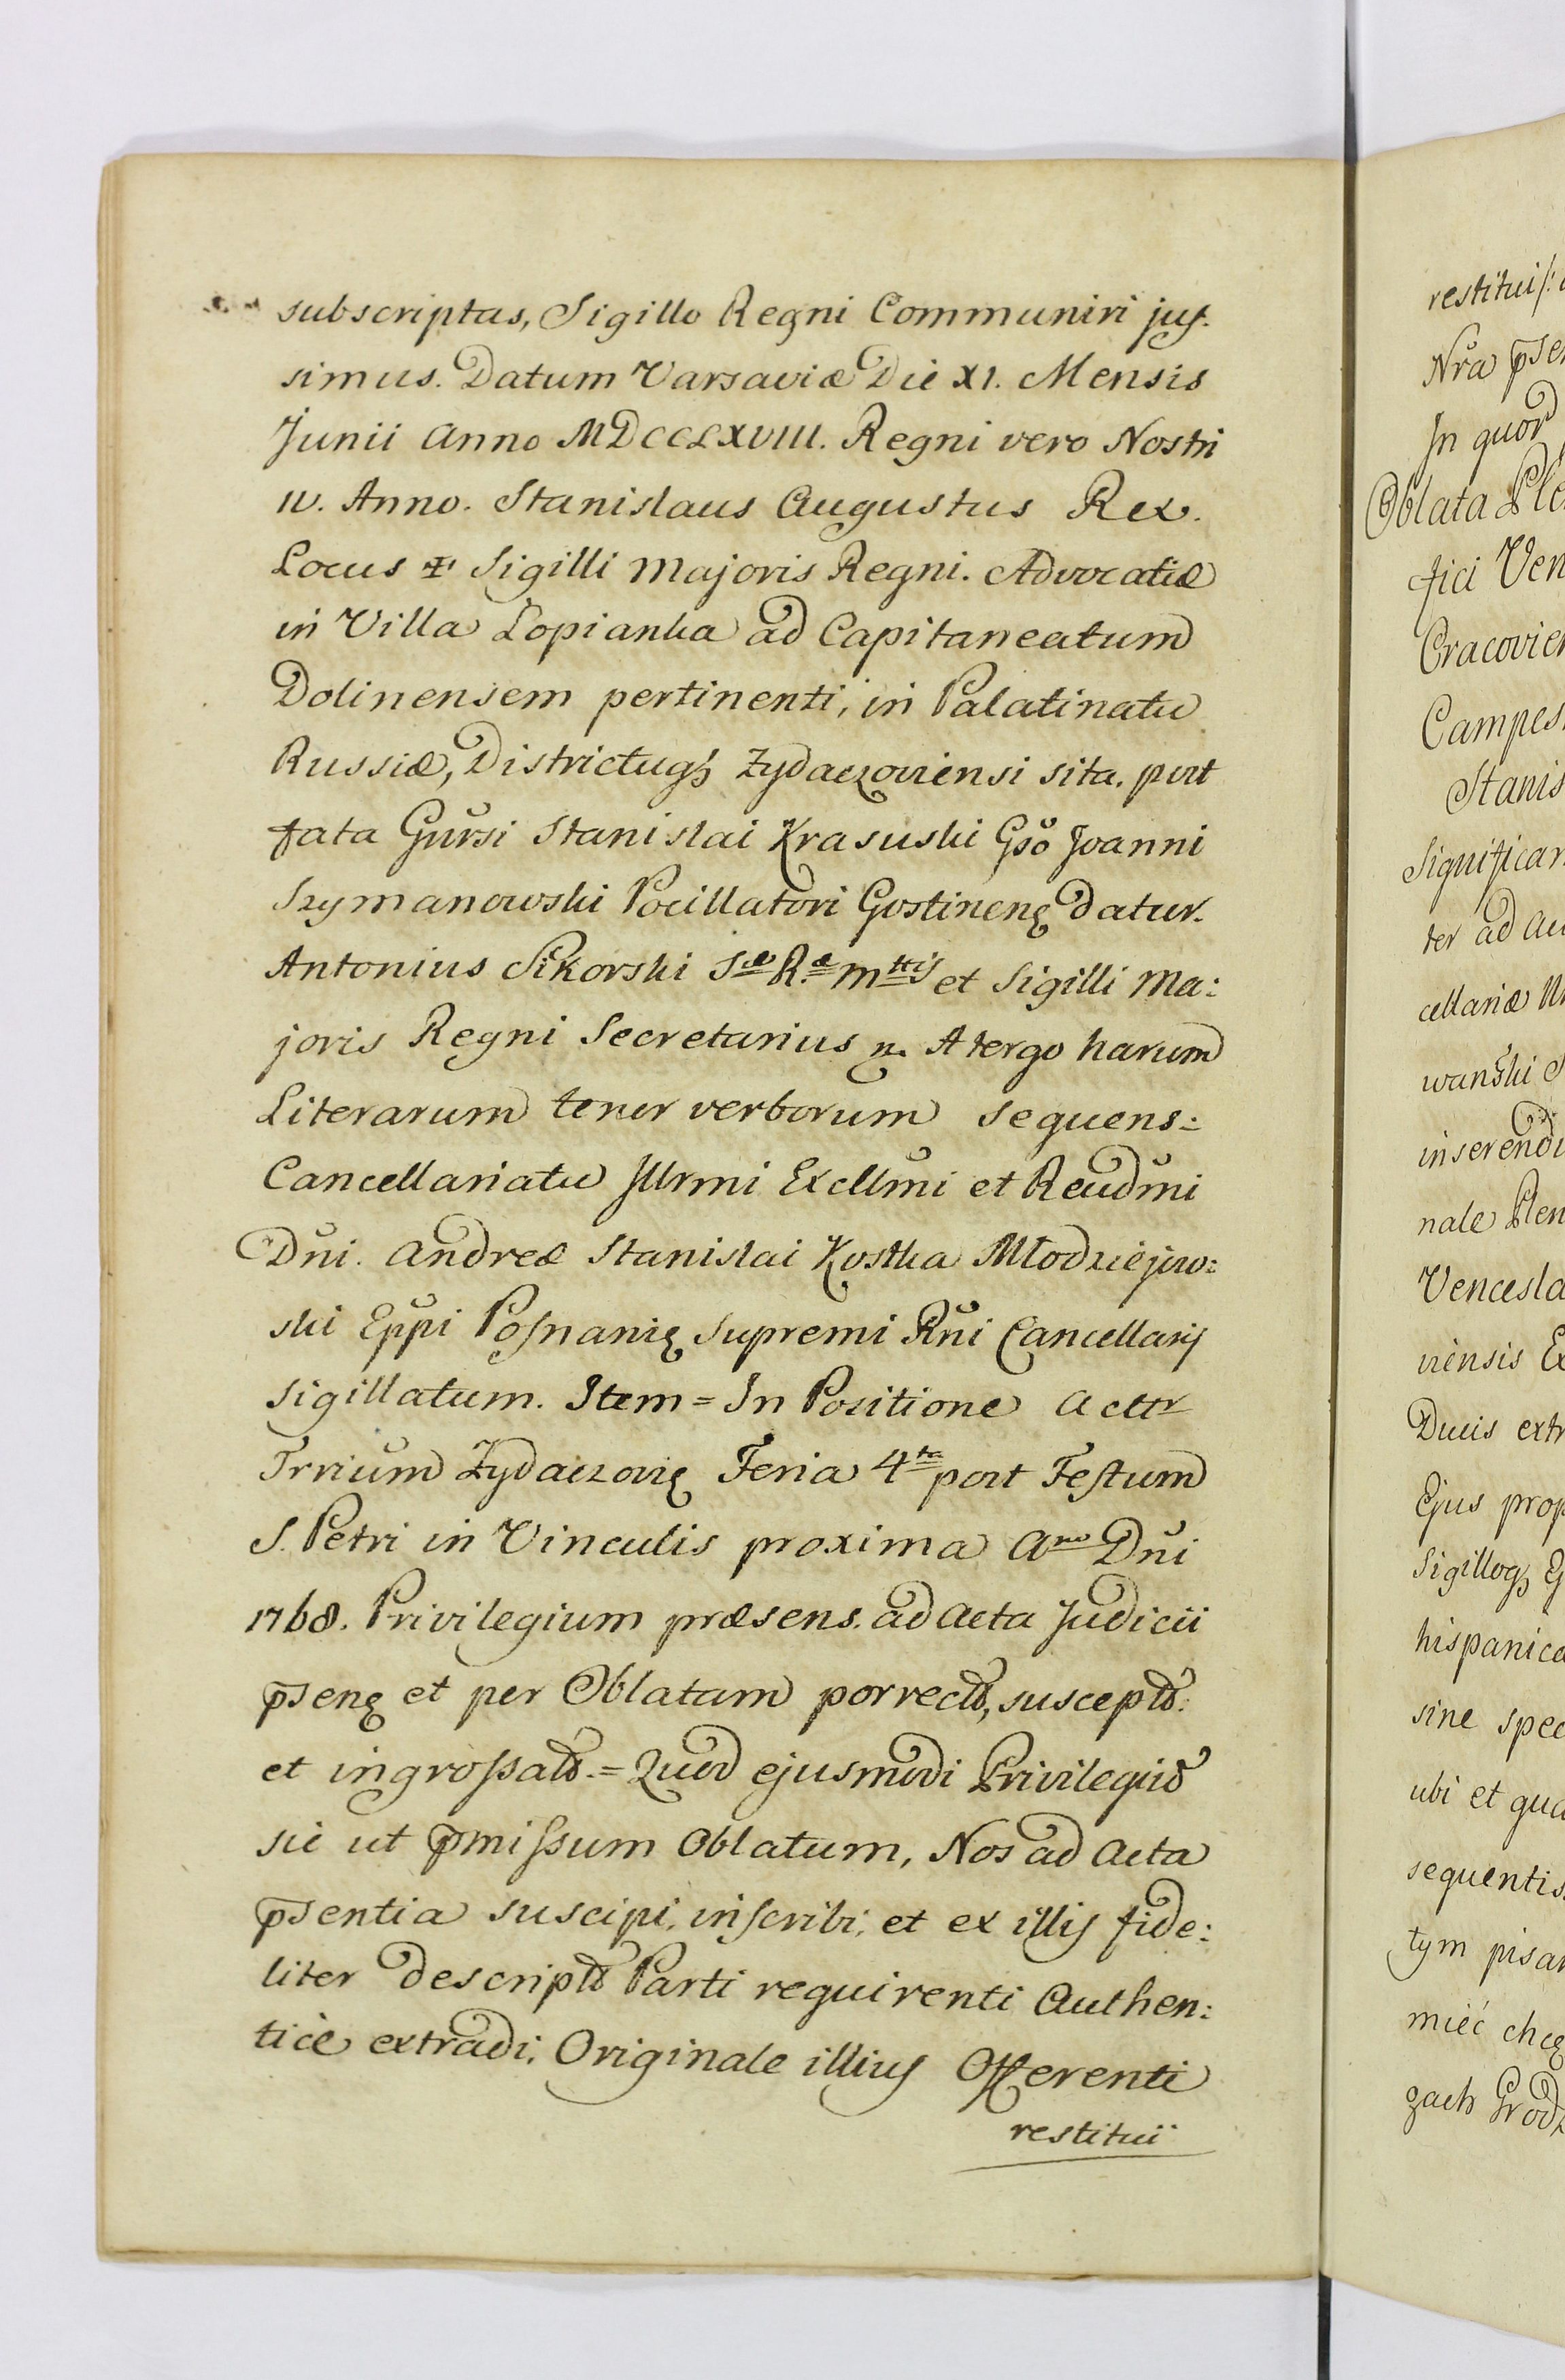 subscriptas, Sigillo Regni Communiri jus:
simus. Datum Varsaviæ Die XI. Mensis
Junii Anno MDCCLXVIII. Regni vero Nostri
IV. Anno. Stanislaus Augustus Rex.
Locus ✠ Sigilli Majoris Regni. Advocatiæ
in Villa Lopianka ad Capitaneatum
Dolinensem pertinenti, in Palatinatu
Russiæ, Districtuqꝫ Zydaczoviensi sita, post
fata Gnrsi Stanislai Krasuski Gso Joanni
Szymanowski Pocillatori Gostinenę datur.
Antonius Sikorski Sæ Ræ Mttis et Sigilli Ma:
joris Regni Secretarius A tergo harum
Literarum tenor verborum sequens:
Cancellariatu Illrmi Excllmi et Reudmi
Dni. Andreæ Stanislai Kostka Młodziejow:
ski Eppi Posnanię Supremi Rni Cancellarij
sigillatum. Item = In Positione Acttr
Trrium Zydaczovię Feria 4ta post Festum
S. Petri in Vinculis proxima Ano Dni
1768. Privilegium præsens ad Acta Judicii
p̄senę et per Oblatam porrectũ, susceptũ.
et ingrossatũ. = Quod ejusmodi Privilegiũ
sic ut p̄missum Oblatum, Nos ad Acta
p̄sentia suscipi, inscribi, et ex illis fide:
liter descriptũ Parti requirenti Authen:
ticè extradi, Originale illius Offerenti
restitui
restitui/:
Nra p̄se
In quor
Oblata Ple
fici Ven
Cracovie
Campes
Stanis
Significa
ter ad
cellariæ
wanski
inserend
nale Plen
Vencesla
viensis Ex
Ducis ext
Ejus prop
Sigilloqꝫ Ej
hispanica
sine spec
ubi et qua
sequentis
tym pisa
mieć chcę
zach Grod